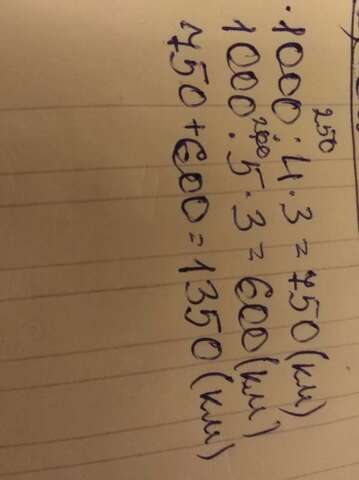 250
1000 : 4 · 3 = 750 (км)
200
1000 : 5 · 3 = 600 (км)
750 + 600 = 1350 (км)